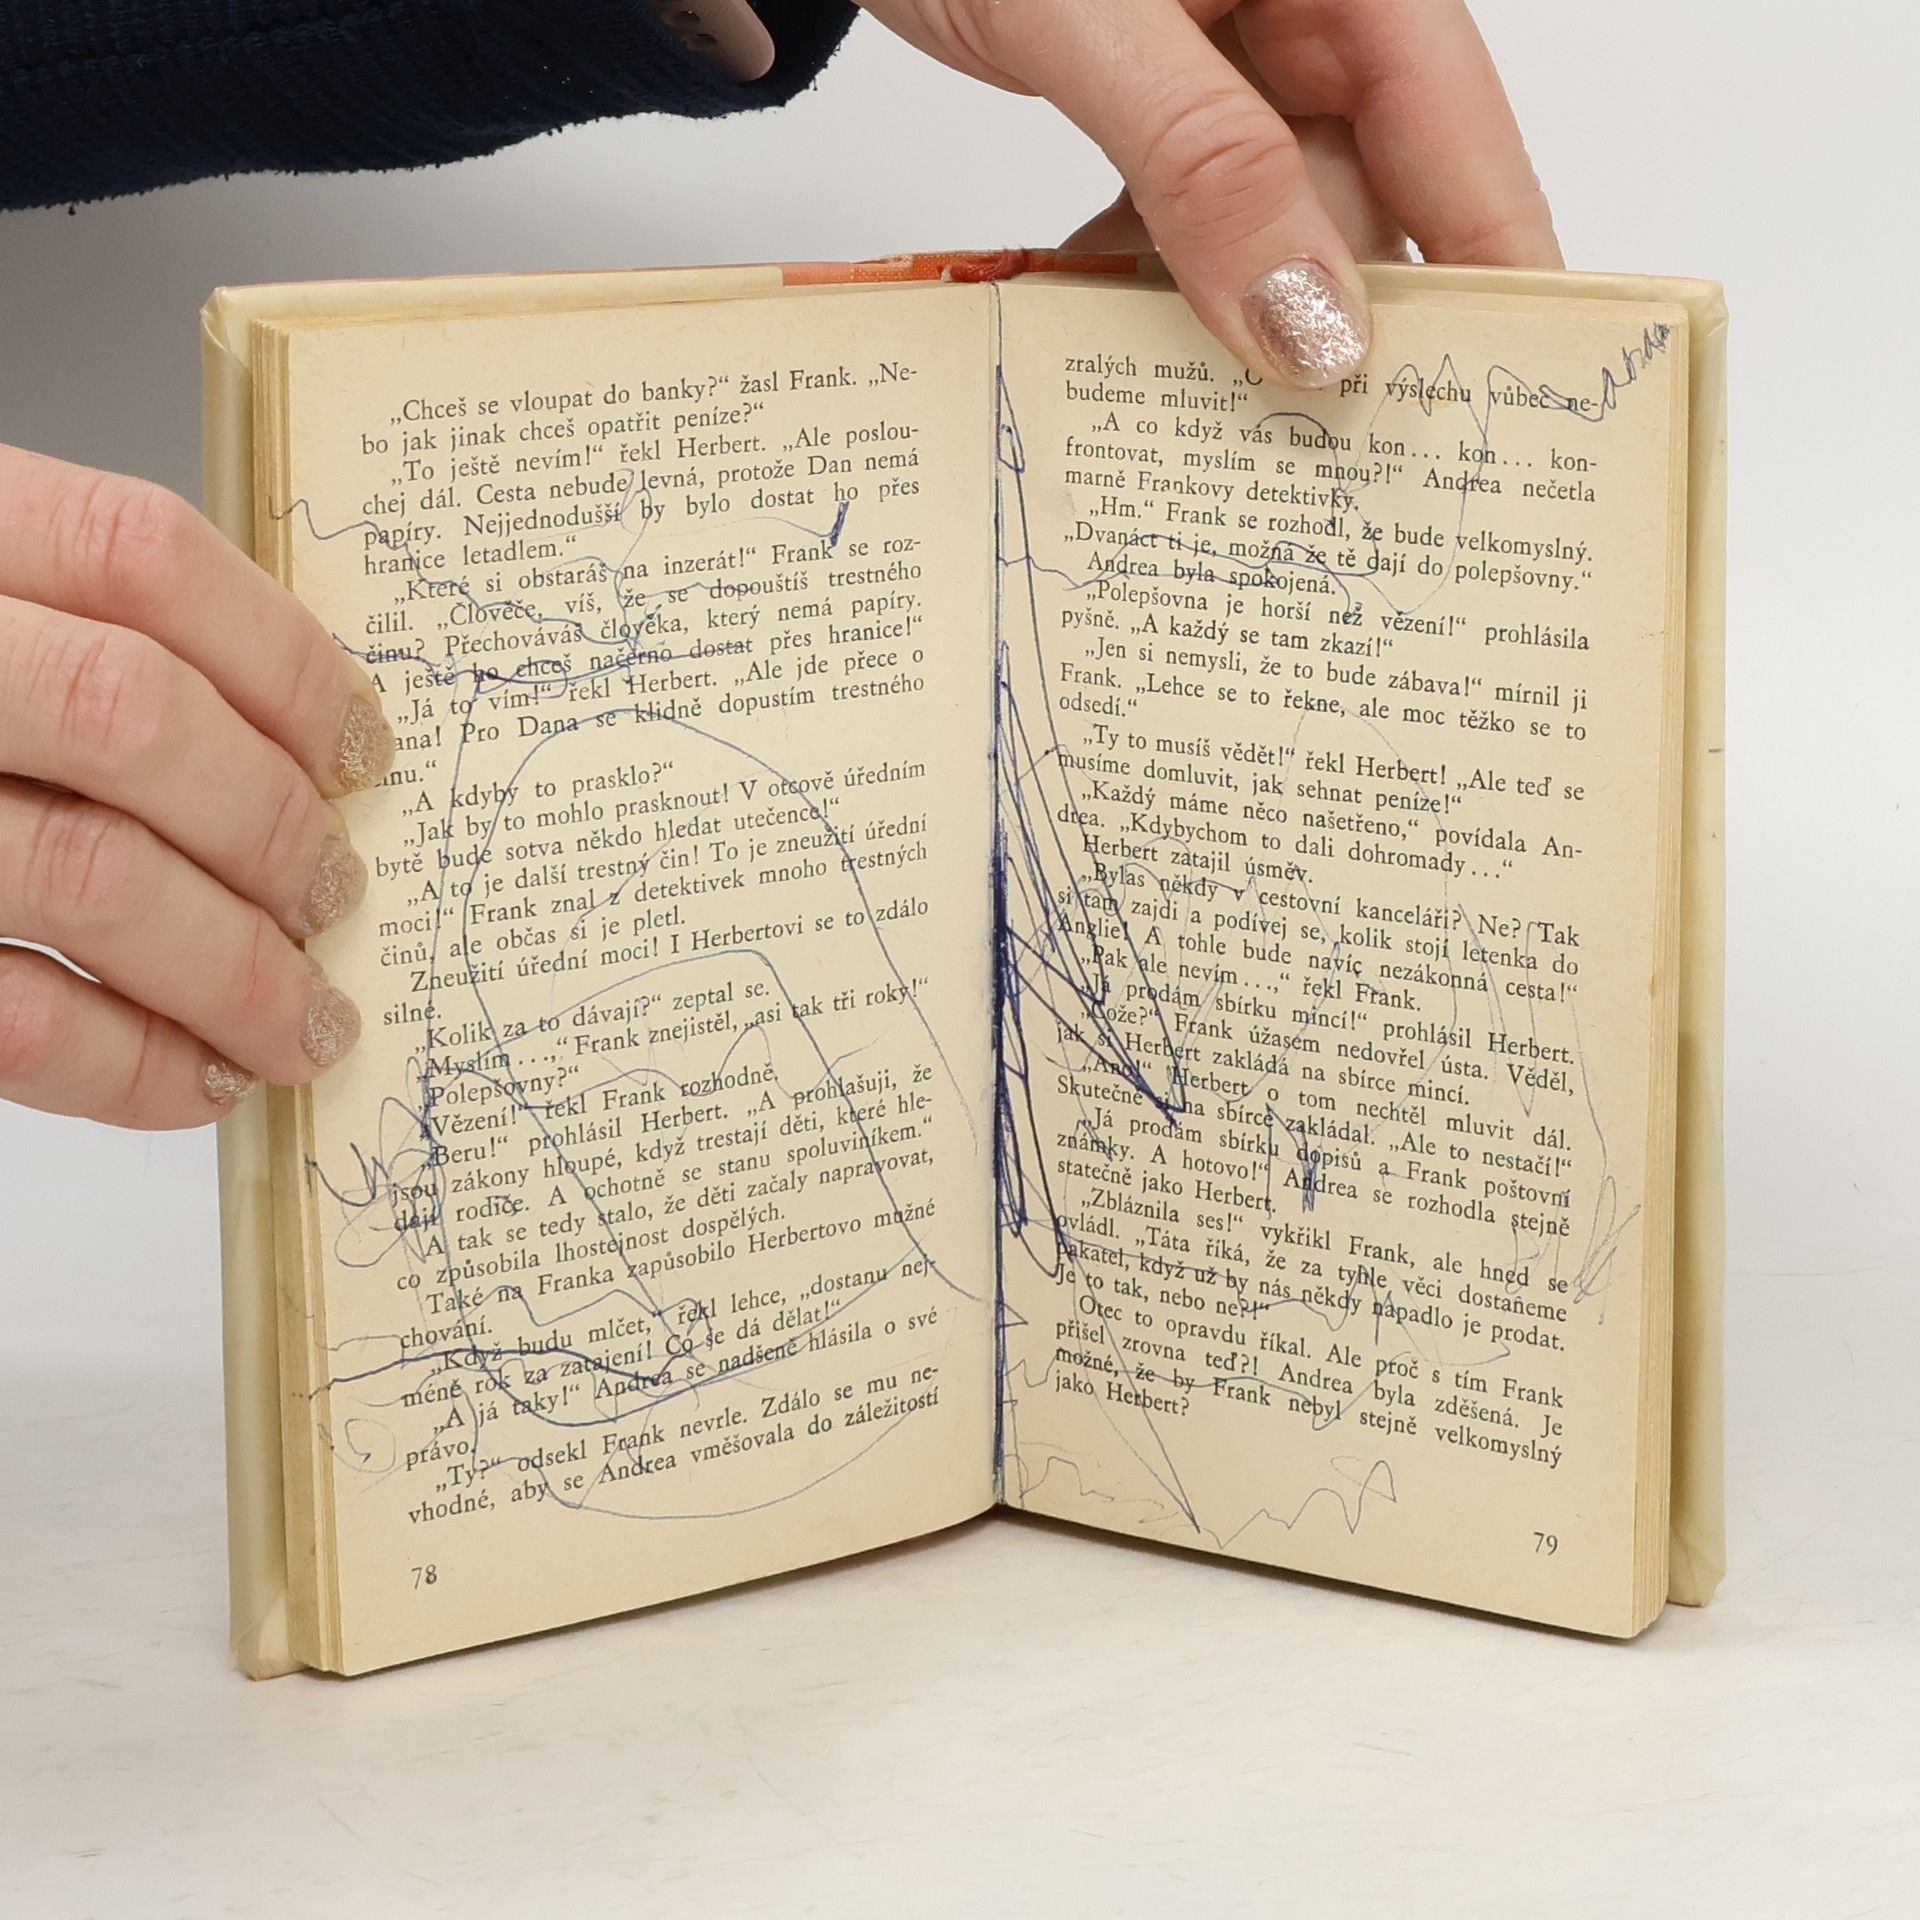 „Chceš se vloupat do banky?“ žasl Frank. „Ne-
bo jak jinak chceš opatřit peníze?“
„To ještě nevím!“ řekl Herbert. „Ale poslou-
chej dál. Cesta nebude levná, protože Dan nemá
papíry. Nejjednodušší by bylo dostat ho přes
hranice letadlem.“
„Které si obstaráš na inzerát!“ Frank se roz-
čilil. „Člověče, víš, že se dopouštíš trestného
činu? Přechováváš člověka, který nemá papíry.
A ještě ho chceš načerno dostat přes hranice!“
„Já to vím!“ řekl Herbert. „Ale jde přece o
ana! Pro Dana se klidně dopustím trestného
inu.“
„A kdyby to prasklo?“
„Jak by to mohlo prasknout! V otcově úředním
bytě bude sotva někdo hledat utečence!“
„A to je další trestný čin! To je zneužití úřední
moci!“ Frank znal z detektivek mnoho trestných
činů, ale občas si je pletl.
Zneužití úřední moci! I Herbertovi se to zdálo
silné.
„Kolik za to dávají?“ zeptal se.
„Myslím...,“ Frank znejistěl, „asi tak tři roky!“
„Polepšovny?“
„Vězení!“ řekl Frank rozhodně.
„Beru!“ prohlásil Herbert. „A prohlašuji, že
jsou zákony hloupé, když trestají děti, které hle-
dají rodiče. A ochotně se stanu spoluviníkem.“
A tak se tedy stalo, že děti začaly napravovat,
co způsobila lhostejnost dospělých.
Také na Franka zapůsobilo Herbertovo mužné
chování.
„Když budu mlčet,“ řekl lehce, „dostanu nej-
méně rok za zatajení! Co se dá dělat!“
„A já taky!“ Andrea se nadšeně hlásila o své
právo.
„Ty?“ odsekl Frank nevrle. Zdálo se mu ne-
vhodné, aby se Andrea vměšovala do záležitostí
78
zralých mužů. „O při výslechu vůbec ne-
budeme mluvit!“
„A co když vás budou kon... kon... kon-
frontovat, myslím se mnou?!“ Andrea nečetla
marně Frankovy detektivky.
„Hm.“ Frank se rozhodl, že bude velkomyslný.
„Dvanáct ti je, možná že tě dají do polepšovny.“
Andrea byla spokojená.
„Polepšovna je horší než vězení!“ prohlásila
pyšně. „A každý se tam zkazí!“
„Jen si nemysli, že to bude zábava!“ mírnil ji
Frank. „Lehce se to řekne, ale moc těžko se to
odsedí.“
„Ty to musíš vědět!“ řekl Herbert! „Ale teď se
musíme domluvit, jak sehnat peníze!“
„Každý máme něco našetřeno,“ povídala An-
drea. „Kdybychom to dali dohromady...“
Herbert zatajil úsměv.
„Bylas někdy v cestovní kanceláři? Ne? Tak
si tam zajdi a podívej se, kolik stojí letenka do
Anglie! A tohle bude navíc nezákonná cesta!“
„Pak ale nevím...,“ řekl Frank.
„Já prodám sbírku mincí!“ prohlásil Herbert.
„Cože?“ Frank úžasem nedovřel ústa. Věděl,
jak si Herbert zakládá na sbírce mincí.
„Ano!“ Herbert o tom nechtěl mluvit dál.
Skutečně si na sbírce zakládal. „Ale to nestačí!“
„Já prodám sbírku dopisů a Frank poštovní
známky. A hotovo!“ Andrea se rozhodla stejně
statečně jako Herbert.
„Zbláznila ses!“ vykřikl Frank, ale hned se
ovládl. „Táta říká, že za tyhle věci dostaneme
pakatel, když už by nás někdy napadlo je prodat.
Je to tak, nebo ne?!“
Otec to opravdu říkal. Ale proč s tím Frank
přišel zrovna teď?! Andrea byla zděšená. Je
možné, že by Frank nebyl stejně velkomyslný
jako Herbert?
79